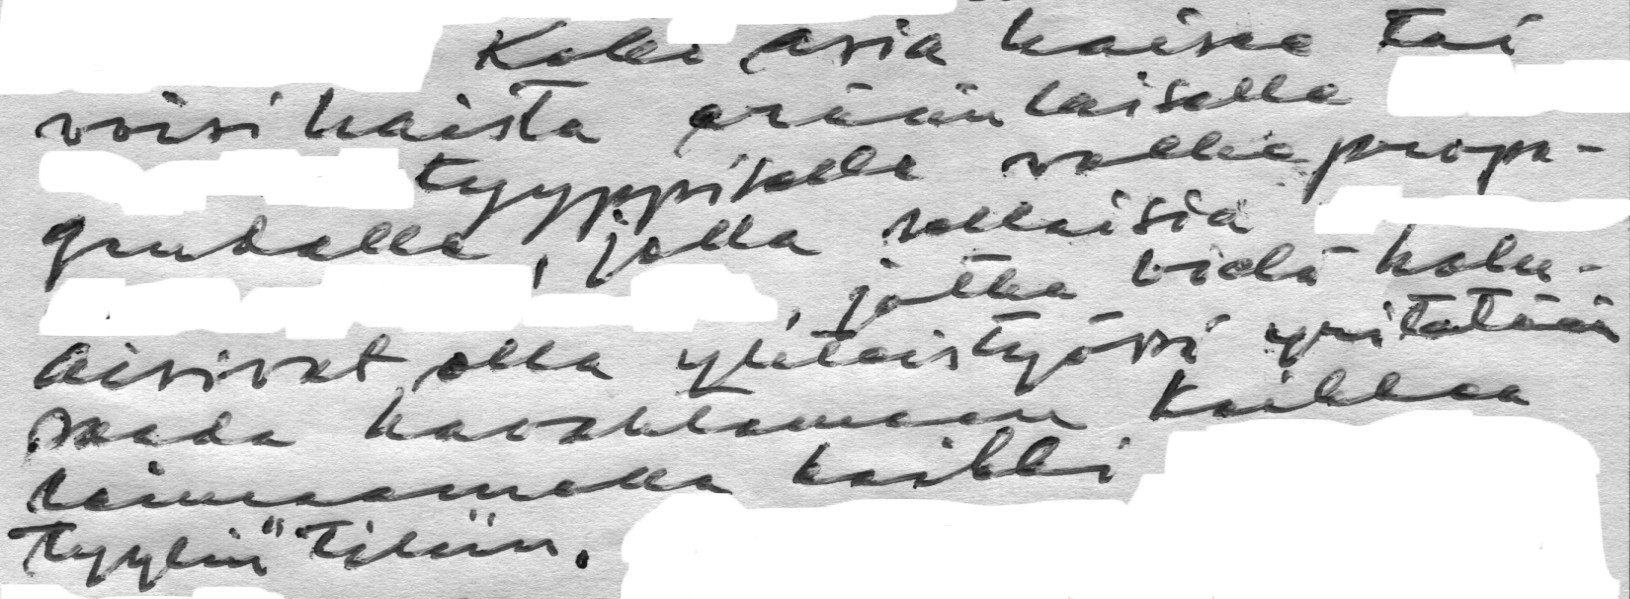 Koko asia haisee tai
voisi haista eräänlaiselle
tyyppiselle valhepropa-
gandalle, jolla sellaisia
, jotka vielä halu-
aisivat olla yhteistyössä yritetään
saada kavahtamaan kaikkea
leimaamalla kaikki
tyyliin" tiliin.